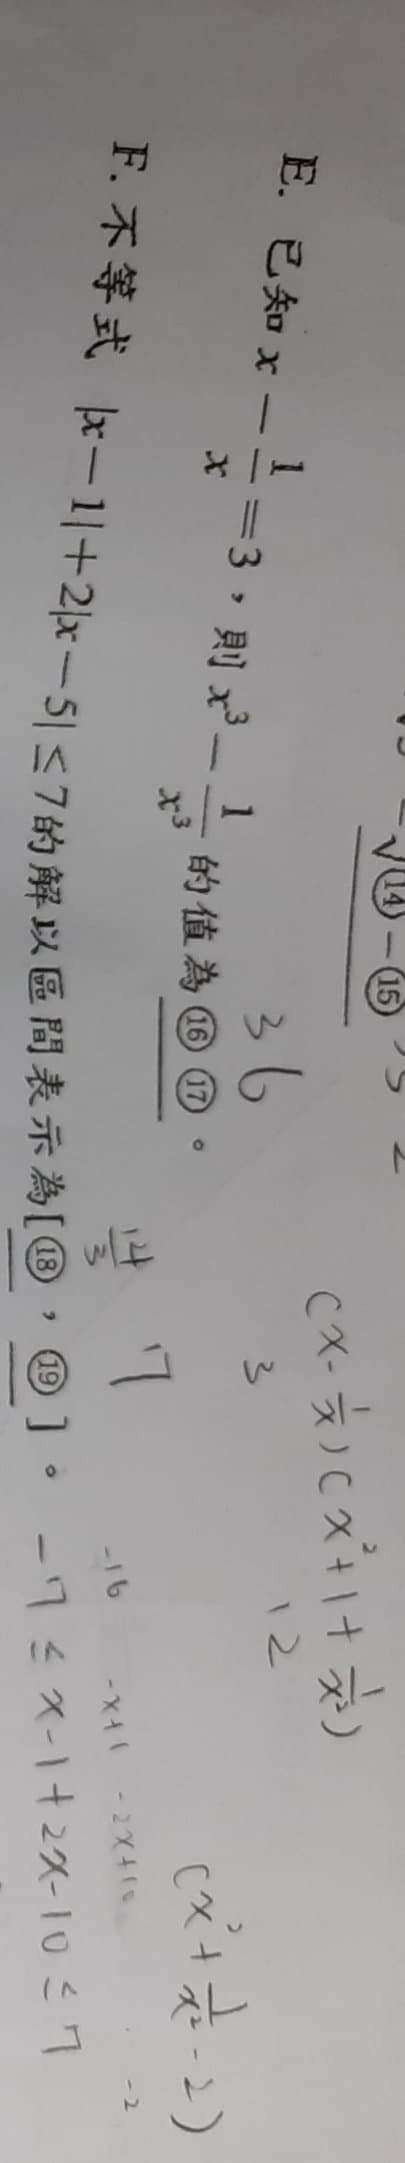 √⑭ − ⑮
E. 已知 x − 1/x = 3，則 x³ − 1/x³ 的值為 ⑯ ⑰。
36
(x - 1/x)(x² + 1 + 1/x²)
3
12
(x² + 1/x² - 2)
F. 不等式 |x − 1| + 2|x − 5| ≤ 7 的解以區間表示為 [⑱，⑲]。
14/3
7
-16
-x+1 -2x+10
-2
-7 ≤ x-1+2x-10 ≤ 7